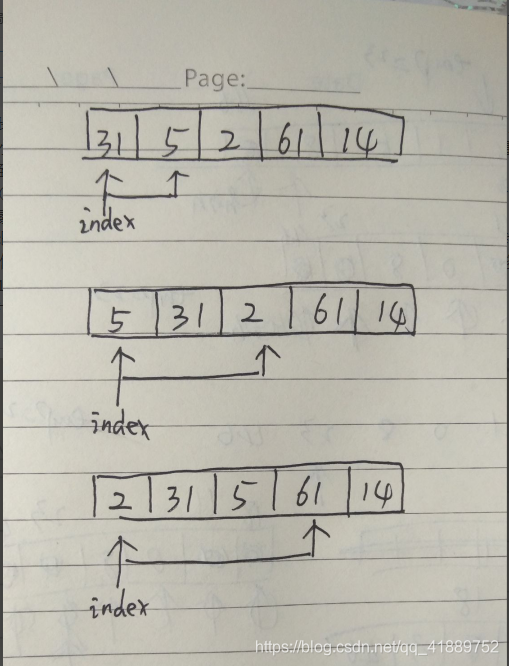 Page:
31 5 2 61 14
index
5 31 2 61 14
index
2 31 5 61 14
index
https://blog.csdn.net/qq_41889752